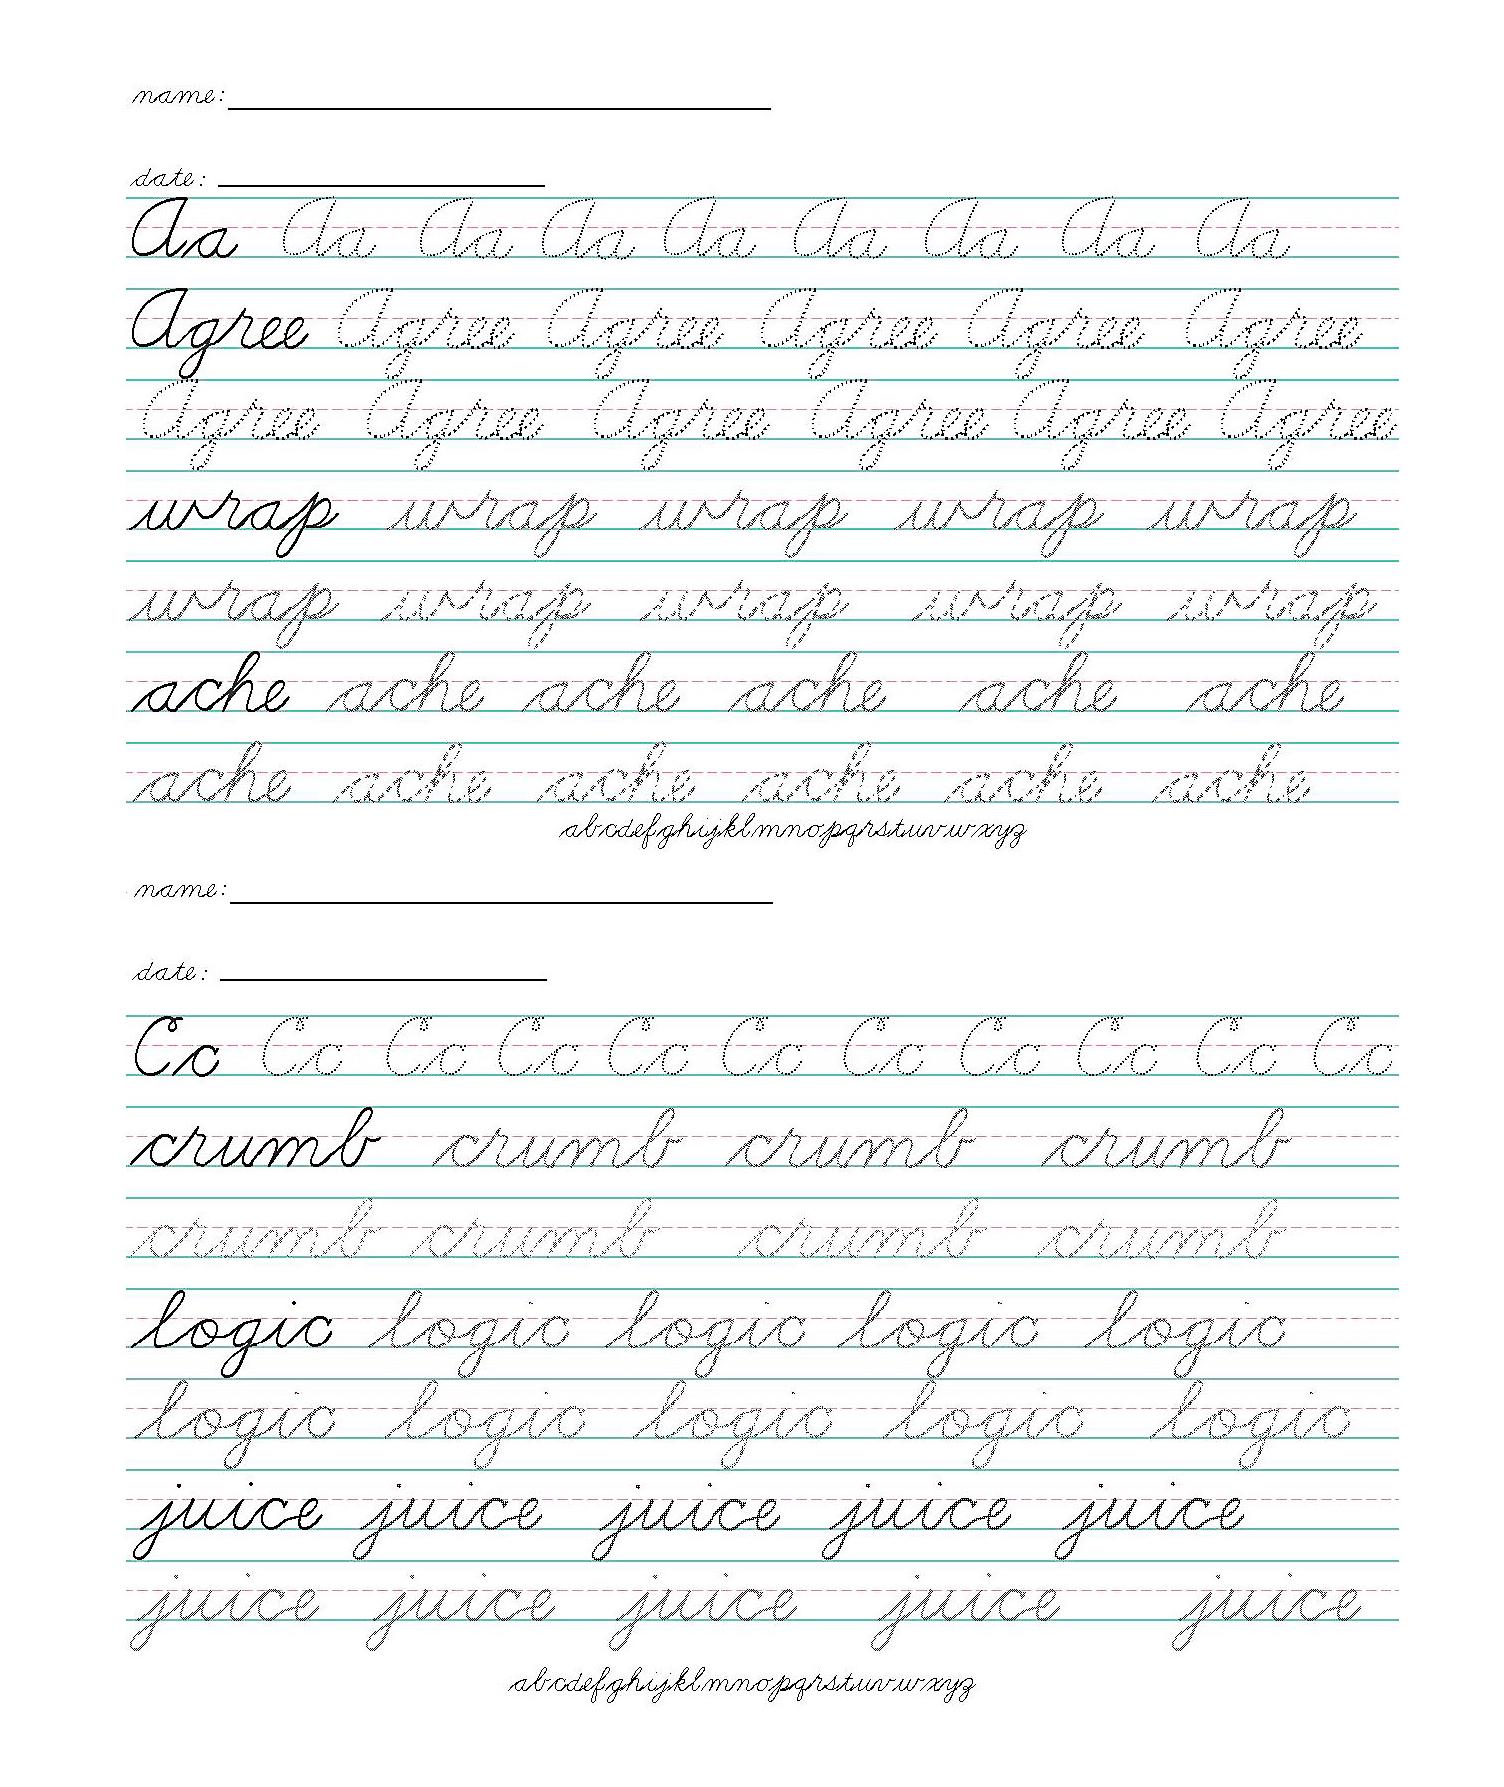 name:
date:
Aa Aa Aa Aa Aa Aa Aa Aa Aa
Agree Agree Agree Agree Agree Agree
Agree Agree Agree Agree Agree Agree
wrap wrap wrap wrap wrap
wrap wrap wrap wrap wrap
ache ache ache ache ache ache
ache ache ache ache ache ache
abcdefghijklmnopqrstuvwxyz
name:
date:
Cc Cc Cc Cc Cc Cc Cc Cc Cc Cc Cc
crumb crumb crumb crumb
crumb crumb crumb crumb
logic logic logic logic logic
logic logic logic logic logic
juice juice juice juice juice
juice juice juice juice juice
abcdefghijklmnopqrstuvwxyz